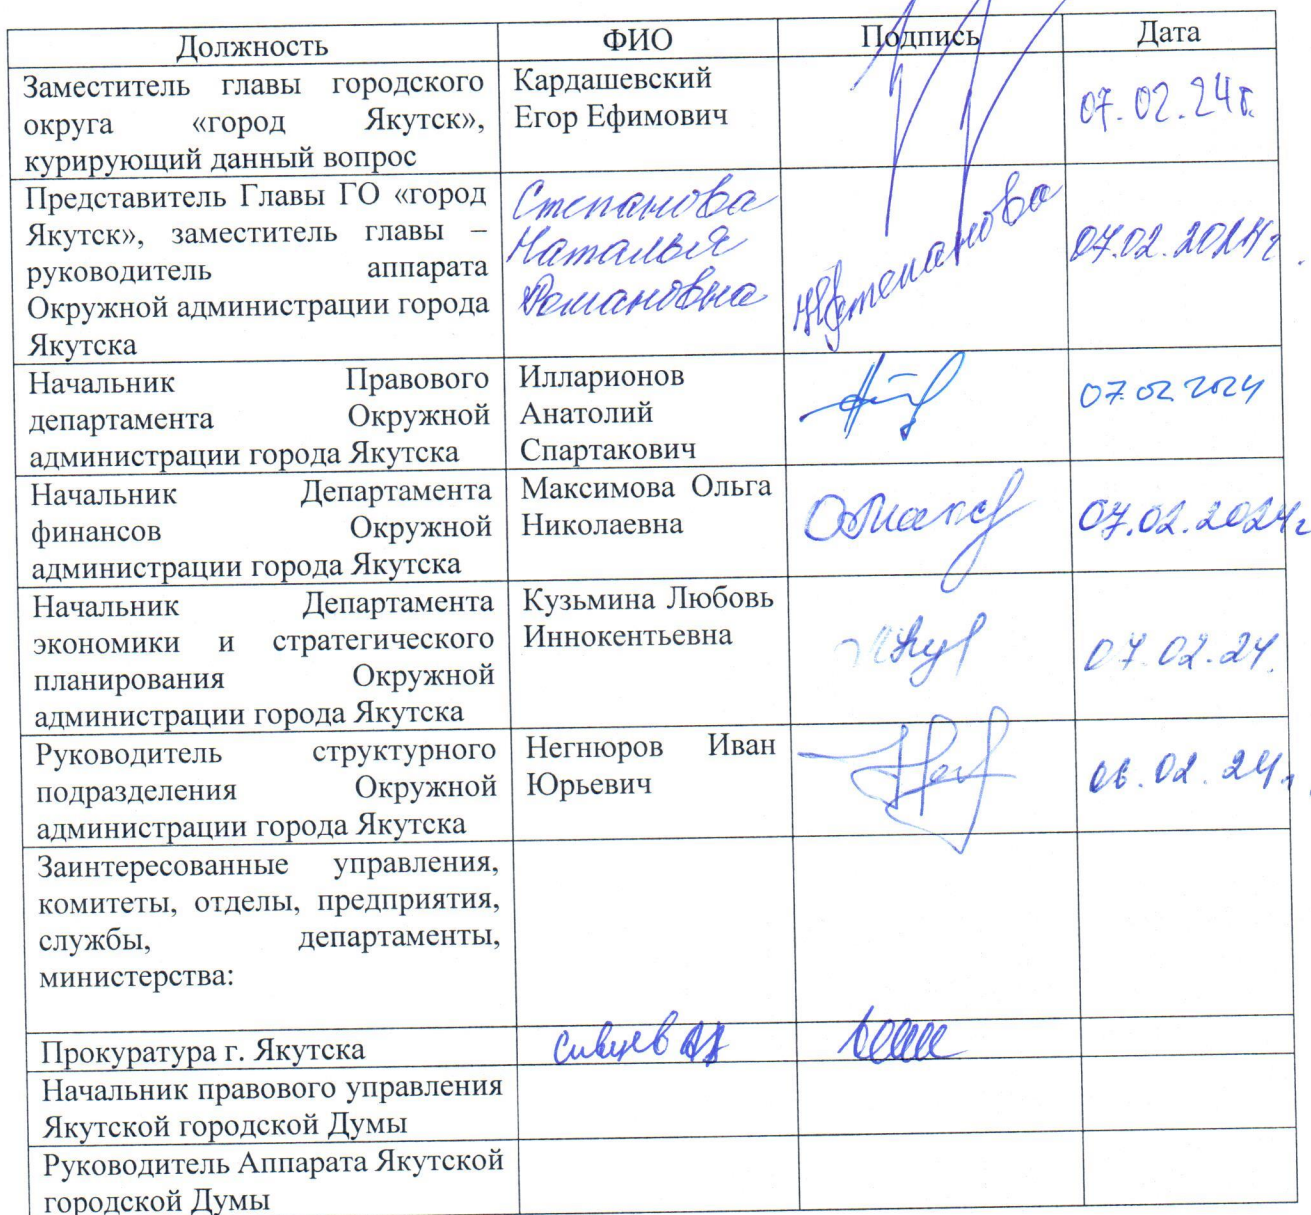 Должность ФИО Подпись Дата
Заместитель главы городского
округа «город Якутск»,
курирующий данный вопрос
Кардашевский
Егор Ефимович
07.02.24г.
Представитель Главы ГО «город
Якутск», заместитель главы –
руководитель аппарата
Окружной администрации города
Якутска
Степанова
Наталья
Романовна
НРСтепанова
07.02.2024г.
Начальник Правового
департамента Окружной
администрации города Якутска
Илларионов
Анатолий
Спартакович
07.02 2024
Начальник Департамента
финансов Окружной
администрации города Якутска
Максимова Ольга
Николаевна
07.02.2024г
Начальник Департамента
экономики и стратегического
планирования Окружной
администрации города Якутска
Кузьмина Любовь
Иннокентьевна
07.02.24.
Руководитель структурного
подразделения Окружной
администрации города Якутска
Негнюров Иван
Юрьевич
06.02.24г.
Заинтересованные управления,
комитеты, отделы, предприятия,
службы, департаменты,
министерства:
Прокуратура г. Якутска
Сивцев
Начальник правового управления
Якутской городской Думы
Руководитель Аппарата Якутской
городской Думы